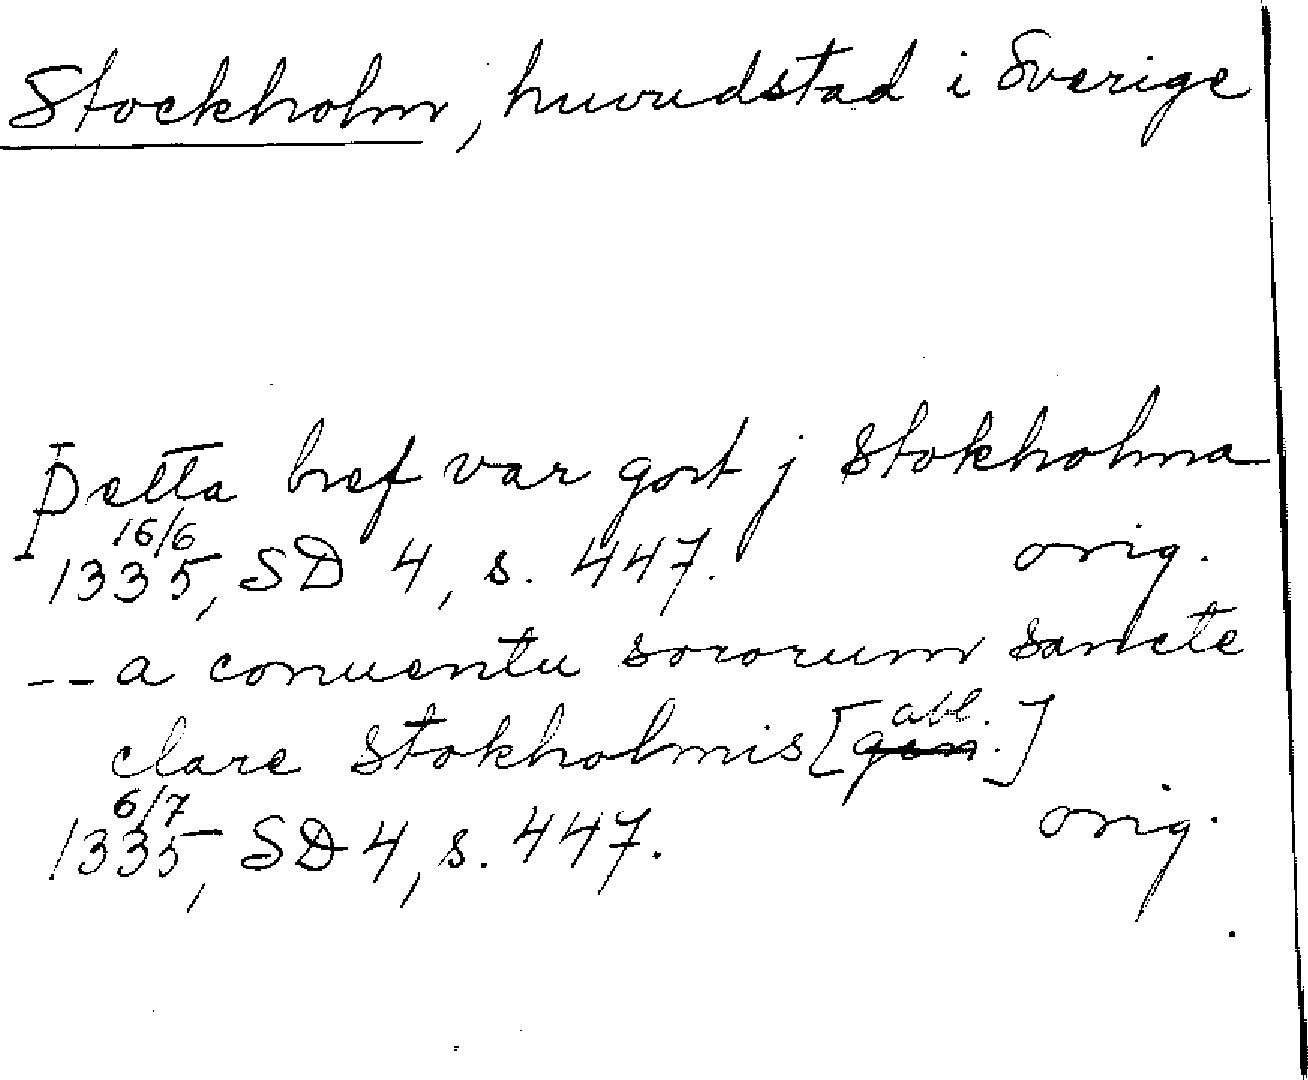 Stockholm, huvudstad i Sverige
Þetta bref var gort j stokholma
16/6
1335, SD 4, s. 447. orig.
-- a conuentu sororum sancte
clare stokholmis [gen. abl.]
6/7
1335, SD 4, s. 447. orig.